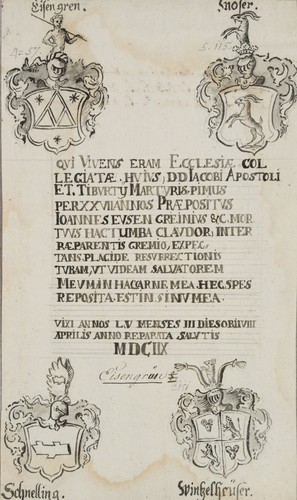 Eisengren. Gnoser.
QVI VIVENS ERAM ECCLESIÆ COL
LEGIATÆ HVIVS, DD IACOBI APOSTOLI
ET. TIBVRTY MARTYRIS. PIMUS
PER XXVII ANNOS PRÆPOSITVS
IOANNES EVSEN GREINIVS &C. MOR
TVVS HAC TVMBA CLAVDOR; INTER
RÆ PARENTIS GREMIO, EXPEC,
TANS. PLACIDE RESVRRECTIONIS
TVBAM, VT VIDEAM SALVATOREM
MEVM IN HAC ARNE MEA. HEC. SPES
REPOSITA. EST. IN SINV MEA.
VIXI ANNOS L.V MENSES III DIES OBII VIII
APRILIS ANNO REPARATÆ SALVTIS
MDCIIX
Eisengrün
Schnelling. Winkelhäuser.